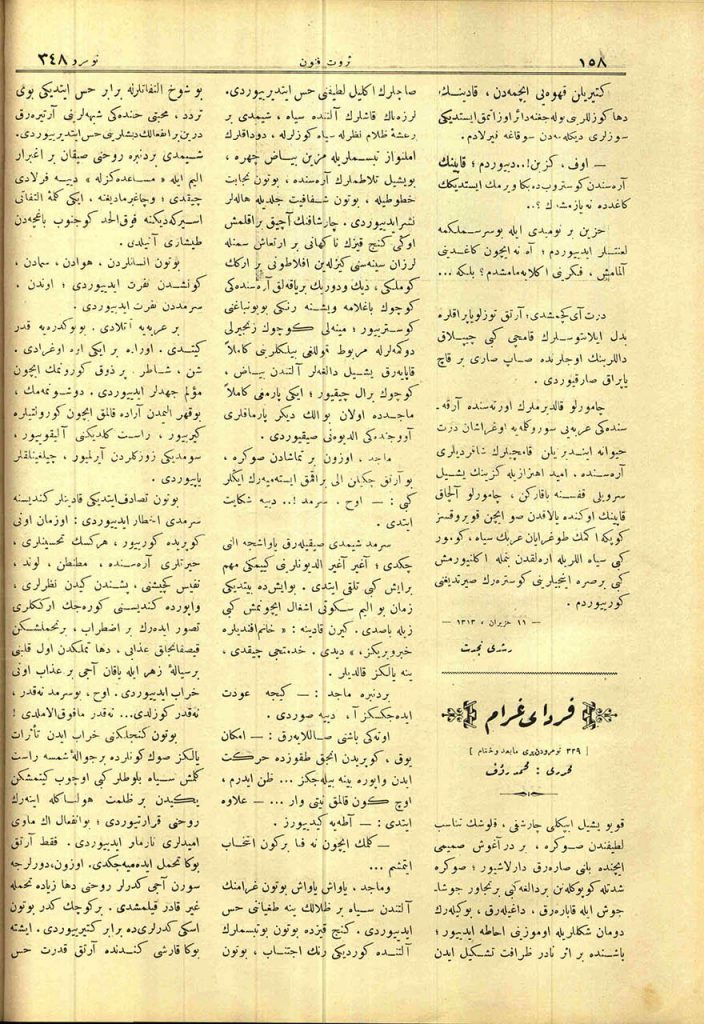 ١٥٨
ثروت فنون
نومرو ٣٤٨
كتيريلن قهوه‌يى ايچمه‌دن ، قادينك
دها كوزللرينى بوله‌جغنه دائر اوزاتمق ايستديكى
سوزلرى ديكله‌مه‌دن سوقاغه فيرلادم .
— اوف ، كزين!.. ديييوردم ؛ قاپينك
آره‌سندن كوستروب ده بكا ويرمك ايستديكك
كاغدده نه يازمشدك ؟..
حزين بر نوميدى ايله بوسرسملكمه
لعنتلر ايدييوردم ؛ آه نه ايچون كاغدينى
آلمامش ، فكرينى اكلايه‌مامشدم ؟ بلكه ...
درت آى كچمشدى ؛ آرتق توزلو ياپراقلره
بدل ايلانقوسلرك قامچى كبى چيپلاق
داللرينك اوجلرنده صاپ صارى بر قاچ
ياپراق صارقيوردى .
چامورلو قالديرملرك اورته‌سنده آرقه‌
سنده‌كى عربه‌يى سوروكله‌يه اوغراشان درت
حيوانه اينديريلن قامچيلرك شاقرديلرى
آره‌سنده . اميد اهتزازيله كزينك يشيل
سرويلى قفسنه باقاركن ، چامورلو آلچاق
قاپينك اوكنده يالاقدن صو ايچن قويروقسز
كوپكه اكمك طوغرايان عربك سياه ، كومور
كبى سياه اللريله اره‌لقدن بنمله اكلنيورمش
كبى برصره اينجيلرينى كوستره‌رك صيرتديغنى
كورييوردم .
— ١١ حزيران ، ١٣١٣ —
رشدى نجدت
فرداى غرام
[ ٣٣٩ نومرودن‌برى مابعد وختام ]
محررى : محمد رؤف
قويو يشيل ايپكلى چارشفى ، قلوشك تناسب
لطيفندن صوكره ، بر در آغوش صميمى
ايچنده يانى صاره‌رق دارلاشيور ؛ صوكره
شدتله كوپوكله‌نن بردالغه‌كبى برتجاور جوشا-
جوش ايله قاباره‌رق ، داغيله‌رق ، بوكيله‌رك
دومان شكللريله اوموزينى احاطه ايدييور ؛
باشنده بر اثر نادر ظرافت تشكيل ايدن
صاچلرك اكليل لطيفنى حس ايتديريييوردى .
لرزه‌ناك قاشلرك آلتنده سياه ، شيمدى بر
رعشهٔ ظلام نظرله سياه كوزلرله ، دوداقلرك
املنواز تبسملريله مزين بياض چهره ،
بويشيل تلاطملرك آره‌سنده ، بوتون نجابت
خطوطيله ، بوتون شفافيت جلديله هاله‌لر
نشرايدييوردى . چارشافك آچيق براقلمش
اوكى كنج قيزك ناكهانى بر ارتعاش سمنله
لرزان سينه‌سنى كيزله‌ين افلاطونى بر اركك
كوملكى ، ديك ودوريك برياقه‌لق آره‌سنده‌كى
كوچوك باغلامه ويشنه رنكى بويونباغنى
كوسترييور ؛ مينه‌لى كوچوك زنجيرلى
دوكمه‌لرله مربوط قوللغى بيلكلرينى كاملاً
قاپايه‌رق يشيل دالغه‌لر آلتندن بياض ،
كوچوك برال چيقيور ؛ ايكى پارمغى كاملاً
ماجدده اولان بوالك ديكر پارماقلرى
آووجنده‌كى الديونى صيقيوردى .
ماجد ، اوزون بر تماشادن صوكره ،
بو آرتق چكيلن الى براقمق ايسته‌ميه‌رك ايكلر
كبى : — اوح . سرمد !.. دييه شكايت
ايتدى .
سرمد شيمدى صيقيله‌رق ياواشجه النى
چكدى ؛ آغير آغير الديونلرينى كييمكى مهم
برايش كبى تلقى ايتدى . بوايش‌ده بيتديكى
زمان بو اليم سكوتى اشغال ايچونمش كبى
زيله باصدى . كيرن قادينه : « خانم‌افنديلره
خبرويريكز » ديدى . خدمتجى چيقدى ،
ينه يالكز قالديلر .
بردنبره ماجد : — كيجه عودت
ايده‌جكسكز آ ، دييه صوردى .
اوته‌كى باشنى صاللايه‌رق : — امكان
يوق ، كويردن انجق طقوزده حركت
ايدن واپوره يينه بيله‌جكز ... ظن ايدرم ،
اوچ كون قالمق نيتى وار ... — علاوه
ايتدى : — آطه‌يه كيدييورز .
— كلمك ايچون نه فنا بركون انتخاب
ايتمشم ...
وماجد . ياواش ياواش بوتون غرامنك
آلتندن سياه بر ظلالك ينه طغياننى حس
ايدييوردى . كنج قيزده بوتون بوتبسملرك
آلتنده كورديكى رنك اجتناب ، بوتون
بو شوخ التفاتلرله برابر حس ايتديكى بوى
تردد ، محبتى خنده‌كى شبهه‌لرينى آرتيره‌رق
درين بر انفعالك ديشلرينى حس ايتديريييوردى .
شيمدى بردنبره روحنى صيقان بر اغبرار
اليم ايله « مساعده‌كزله » دييه فرلادى
چيقدى ؛ وچاغرمه‌ديغنه . ايكى كلمهٔ التفاتى
اسيركه‌ديكنه فوق‌الحد كوجنوب باغچه‌دن
طيشارى آتيلدى .
بوتون انسانلردن ، هوادن ، سمادن ،
كونشدن نفرت ايدييوردى ؛ اوندن ،
سرمددن نفرت ايدييوردى .
بر عربه‌يه آتلادى . بويوكدره‌يه قدر
كيتدى . اوراده بر ايكى اره اوغرادى .
شن ، شاطر ، پر ذوق كورونمك ايچون
مؤلم جهدلر ايدييوردى . دوشونمه‌مك ،
بوقهر اليمدن آزاده قالمق ايچون كورولتيلره
كيريييور ، راست كلديكنى آليقويييور ،
سومديكى زوزكلردن آيرلميور ، چيلغينلقلر
ياپييوردى .
بوتون تصادف ايتديكى قادينلر كنديسنه
سرمدى اخطار ايدييوردى : اوزمان اونى
كوپريده كورييور ، هركسك تحسينلرى ،
حيرتلرى آره‌سنده ، مطنطن ، لوند ،
نفيس كچيشنى ، پشندن كيدن نظرلرى ،
واپورده كنديسنى كوره‌جك اركككلرى
تصور ايده‌رك بر اضطراب ، برتحملشكن
قيصقانجلق عذابى ، دها تملكدن اول قلبنى
برسيالهٔ زهر ايله ياقان آجى بر عذاب اونى
خراب ايدييوردى . اوح ، بوسرمد نه‌قدر ،
نه‌قدر كوزلدى ... نه‌قدر مافوق الاملدى !
بوتون كنجلكنى خراب ايدن تأثرات
يالكز صوك كونلرده برجوالهٔ شمسه راست
كلمش سياه بلوطلر كبى اوچوب كيتمشكن
يكيدن بر ظلمت هولناكله اينه‌رك
روحنى قرارتييوردى ؛ بوانفعال اك ماوى
اميدلرى تارمار ايدييوردى . فقط آرتق
بوكا تحمل ايده‌ميه‌جكدى . اوزون ، دورلرجه
سورن آجى كدرلر روحنى دها زياده تحمله
غير قادر قيلمشدى . بركوچك كدر بوتون
اسكى كدرلرى ده برابر كتيرييوردى . ايشته
بوكا قارشى كندنده آرتق قدرت حس